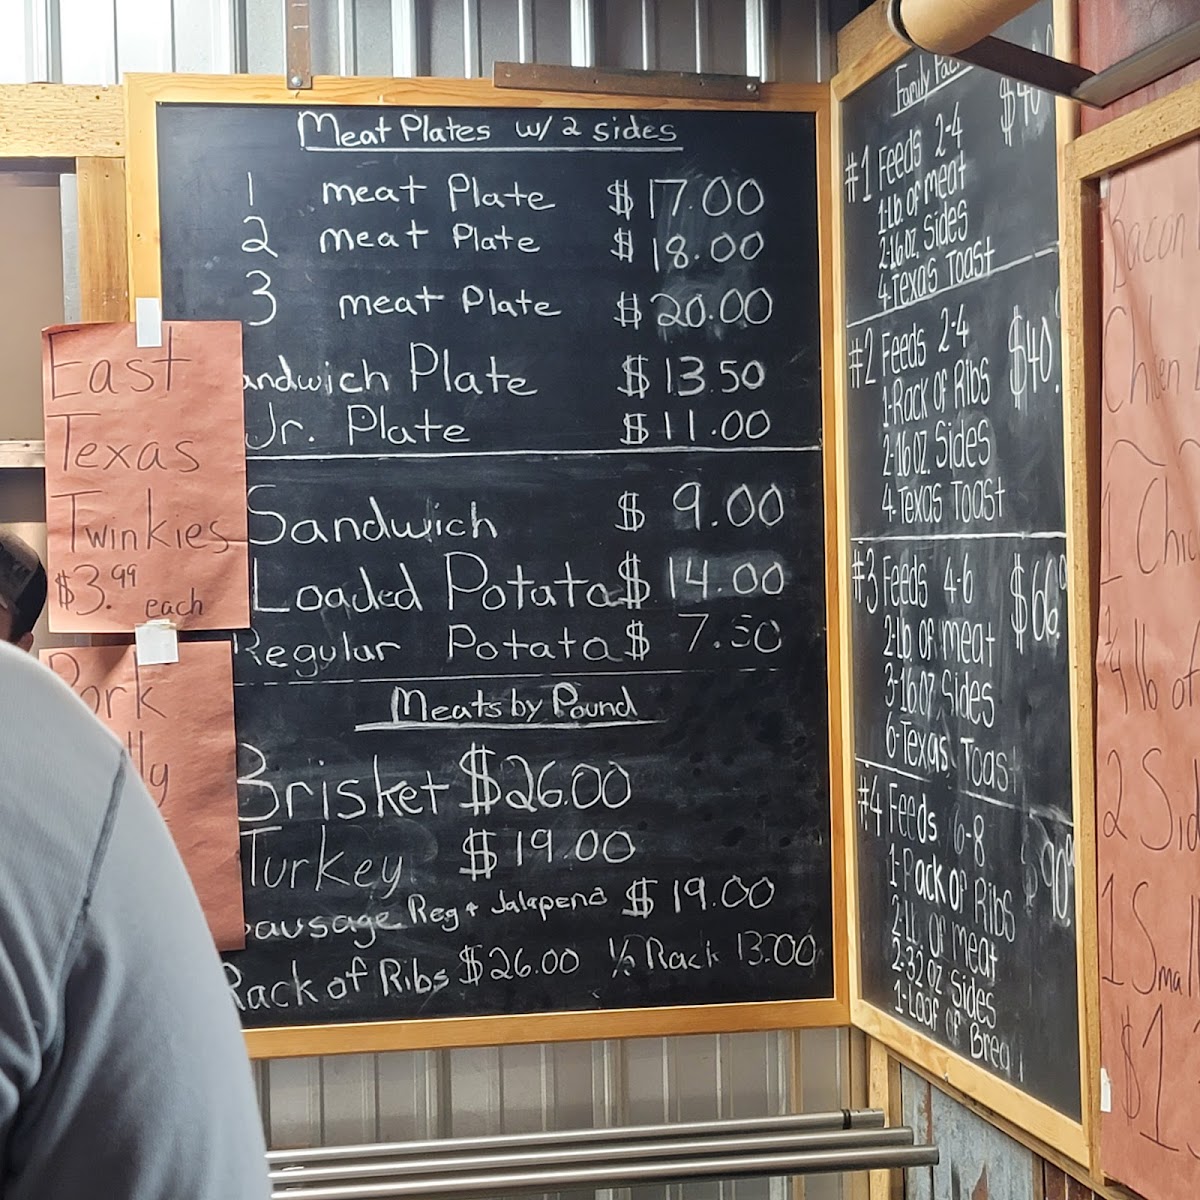 Meat Plates w/ 2 sides
1 meat Plate $17.00
2 meat Plate $18.00
3 meat Plate $20.00
andwich Plate $13.50
Jr. Plate $11.00
Sandwich $9.00
Loaded Potato $14.00
Regular Potato $7.50
Meats by Pound
Brisket $26.00
Turkey $19.00
ausage Reg + Jalapeno $19.00
Rack of Ribs $26.00 ½ Rack 13.00
East
Texas
Twinkies
$3.99 each
Pork
lly
Family Pac
#1 Feeds 2-4 $40
1-Lb. of meat
2-16oz. Sides
4-Texas Toast
#2 Feeds 2-4 $40.
1-Rack of Ribs
2-16oz. Sides
4-Texas Toast
#3 Feeds 4-6 $66.
2-lb of meat
3-16oz Sides
6-Texas Toast
#4 Feeds 6-8 $90.
1-Rack of Ribs
2-lb. of meat
2-32oz Sides
1-Loaf of Bread
Bacon
1 Chic
lb of
2 Sid
1 Small
$1